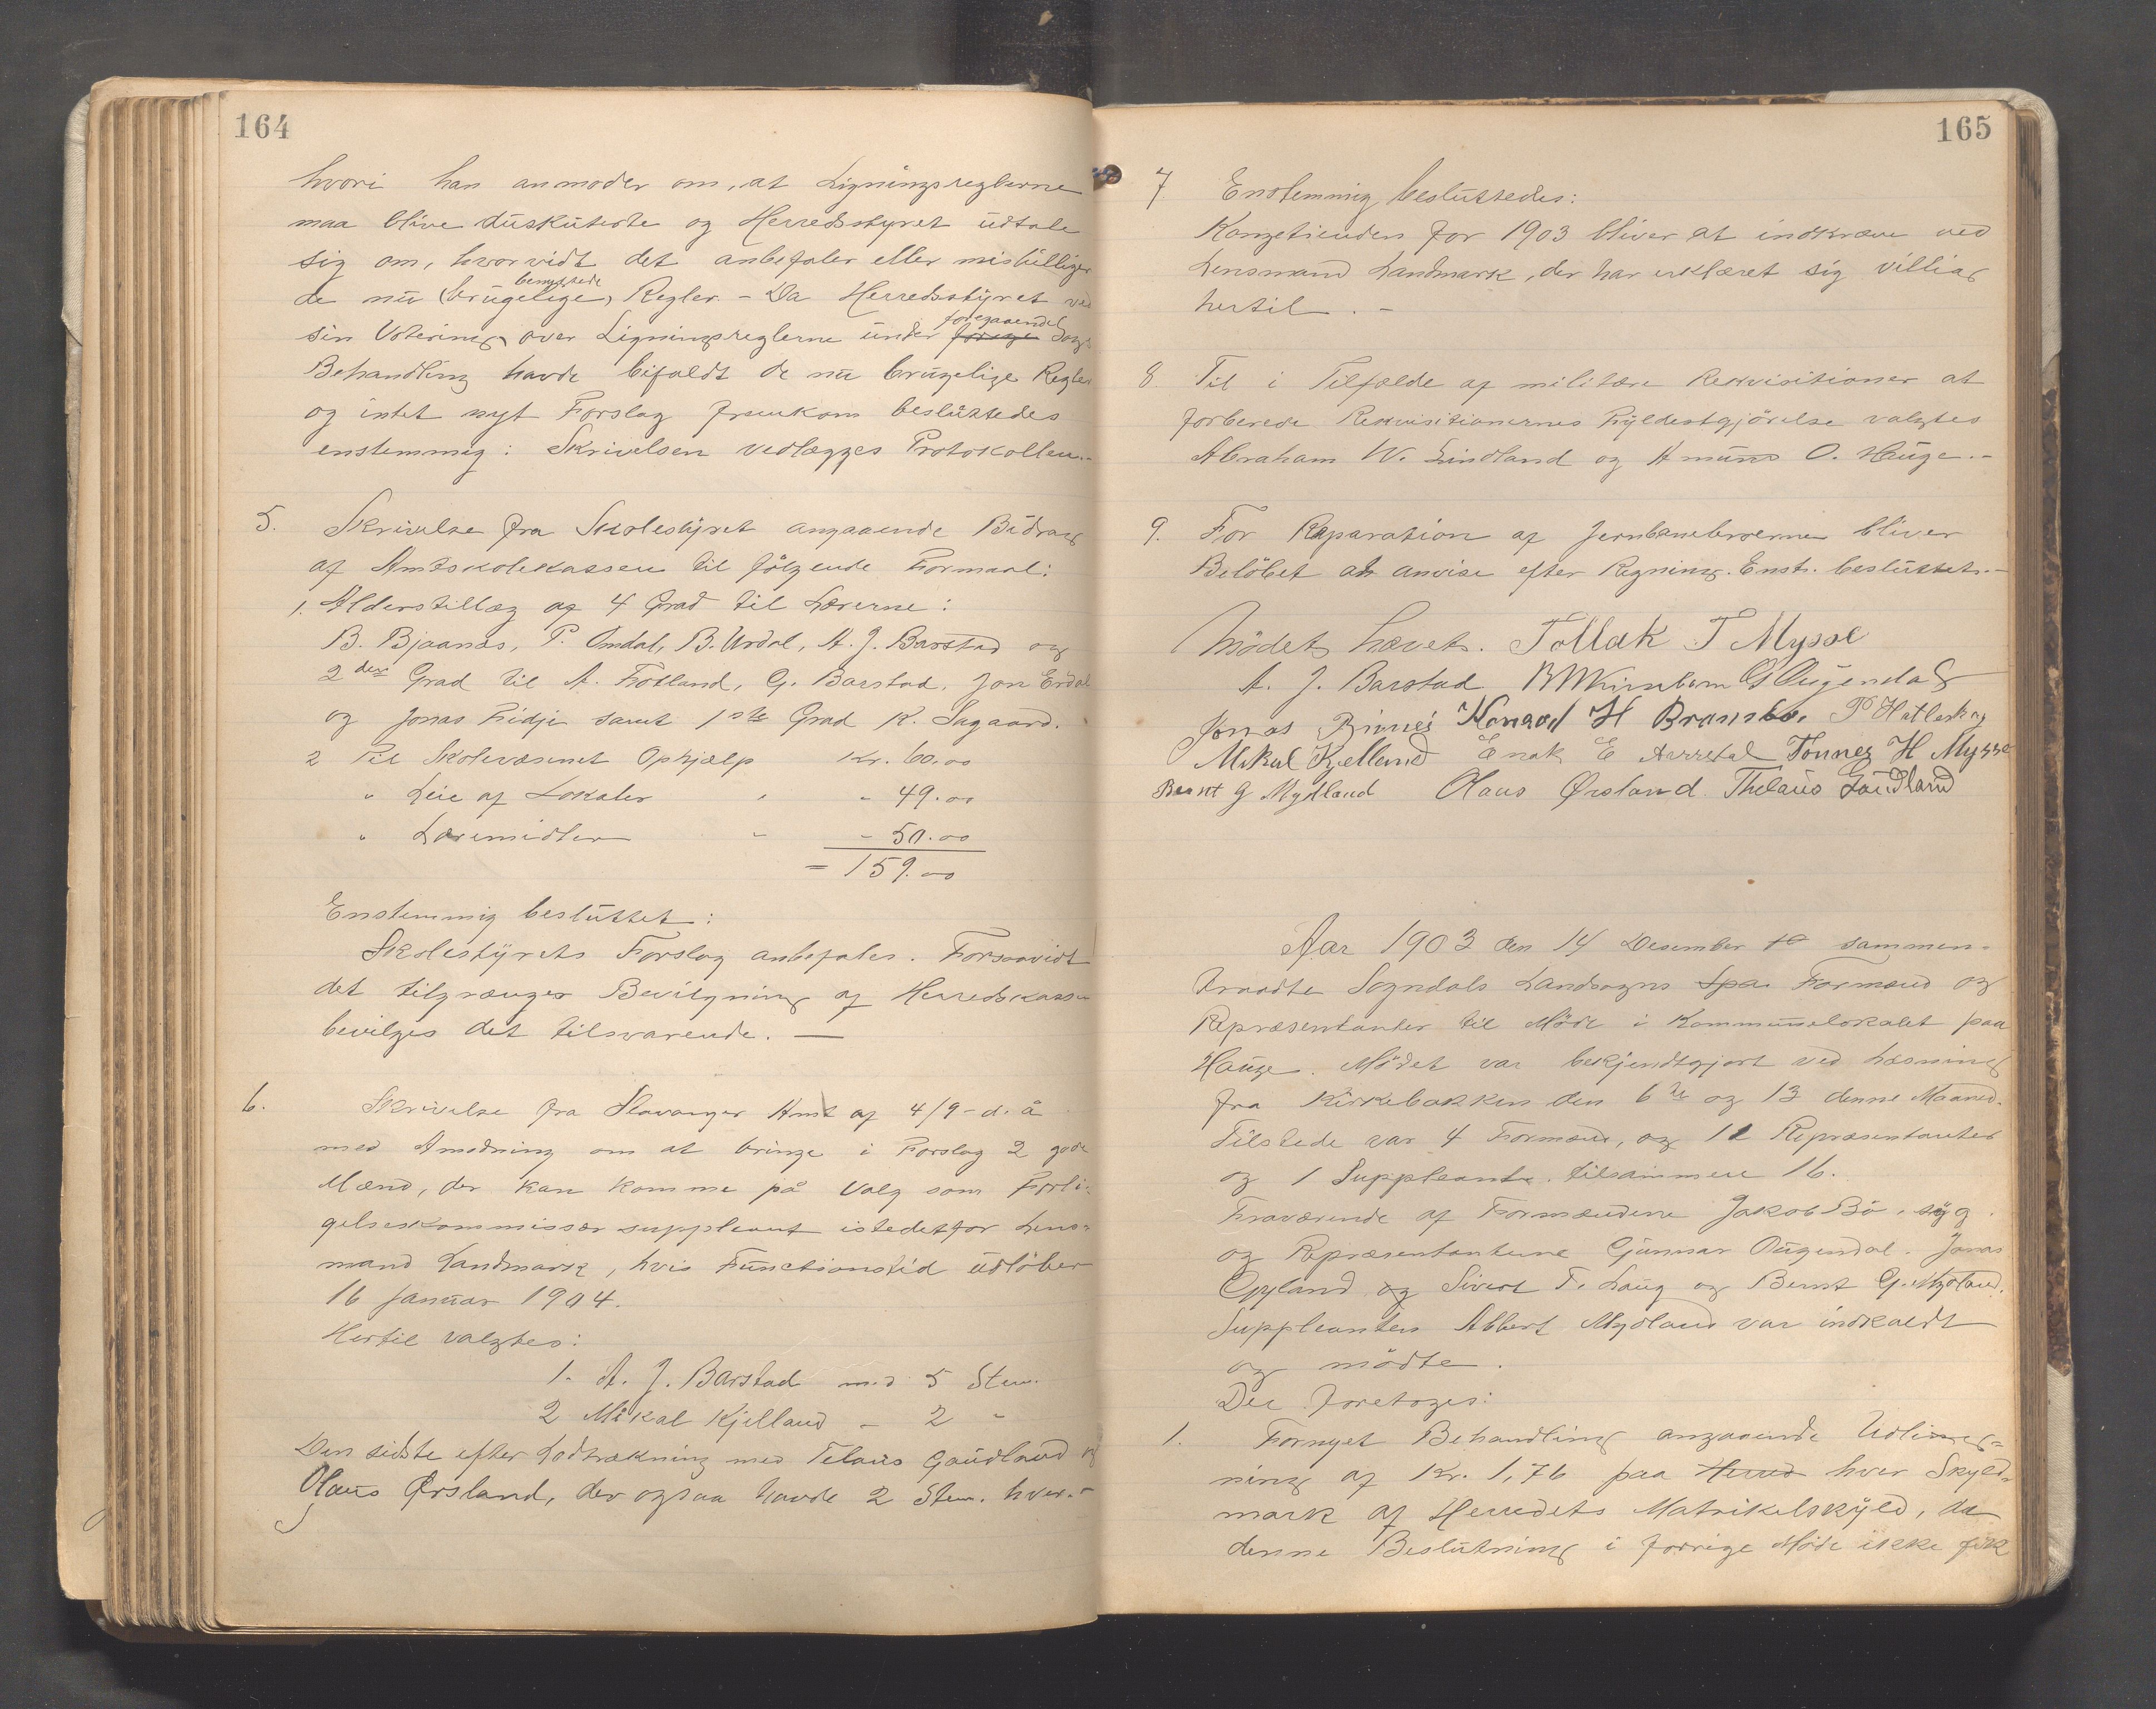 164
hvori han anmoder om, at Ligningsreglerne
maa blive duskuterte og Herredsstyret udtale
sig om, hvorvidt det anbefaler eller misbilliger
benyttede
de nu (brugelige) Regler. - Da Herredsstyret ved
foregaaende
sin Votering over Ligningsreglerne under forege Sags
Behandling havde bifaldt de nu brugelige Regler
og intet nyt Forslag fremkom besluttedes
enstemmig: Skrivelsen vedlægges Protokollen.-
5. Skrivelse fra Skolestyret angaaende Bidrag
af Amtskolekassen til følgende Formaal:
1. Alderstillæg af 4 Grad til Lærerne:
B. Bjaanes, P. Omdal, B. Urdal, A. J. Barstad og
2den Grad til A. Frøtland, G. Barstad, Jon Erdal
og Jonas Hidji samt 1ste Grad K. Sagaard.
2 Til Skolevæsenet Ophjælp Kr. 60.00
" Leie af Lokaler " - 49.00
" Læremidler - - 50.00
= 159.00
Enstemmig besluttet:
Skolestyrets Forslag anbefales. Forsaavidt
det tilgrænges Bevilgning af Herredskassen
bevilges det tilsvarende. —
6. Skrivelse fra Stavanger Amt af 4/9 - d. å
med Amodning om at bringe i Forslag 2 gode
Mænd, der kan komme på Valg som Forli-
gelseskommissær suppleant istedetfor Lens-
mand Landmark, hvis Functionstid udløber
16 Januar 1904.
Hertil valgtes:
1. A. J. Barstad med 5 Stem.
2 Mikal Kjelland - 2 -
Den sidste efter Lodtrækning med Telaus Gaudland og
Olaus Ørsland, der ogsaa havde 2 Stem. hver.-
165
7. Enstemmig besluttedes:
Kongetienden for 1903 bliver at indkræve ved
Lensmand Landmark, der har erklæret sig villig
hertil. -
8 Til i Tilfælde af militære Rekvisitioner at
forberede Rekvisitionernes Fyldestgjörelse valgtes
Abraham W. Lindland og Amund O. Hauge.-
9. For Reparation af Jernbanebroerne bliver
Belöbet at anvise efter Regning. Enst. besluttet.-
Mödet hævet. Tollak T Mysse
A. J. Barstad G Ougendal
Jonas Konrad H Bransbo.
Mikal Kjelland Enok E Tønnes H Mysse
Bernt G Mydland Olaus Ørsland. Thelaus Gaudland
Aar 1903 den 14 Desember to sammen-
traadte Sogndals Landsogns Spa Formænd og
Repræsentanter til Möde i Kommunelokalet paa
Hauge. Mödet var bekjendtgjort ved Læsning
fra Kirkebakken den 6te og 13 denne Maaned.
Tilstede var 4 Formænd, og 11 Repræsentanter
og 1 Suppleant. tilsammen 16.
Fraværende af Formændene Jakob Bö, syg.
og Repræsentanterne Gunnar Ougendal. Jonas
Eppland og Sivert T. Laug og Bernt G. Mydland.
Suppleanten Albert Mydland var indkaldt
og mödte.
Der foretoges:
1. Fornyet Behandling angaaende Udlig-
ning af Kr. 1,76 paa Herred hver Skyld-
mark af Herredets Matrikelskyld, da
denne Beslutning i forrige Möde ikke fik